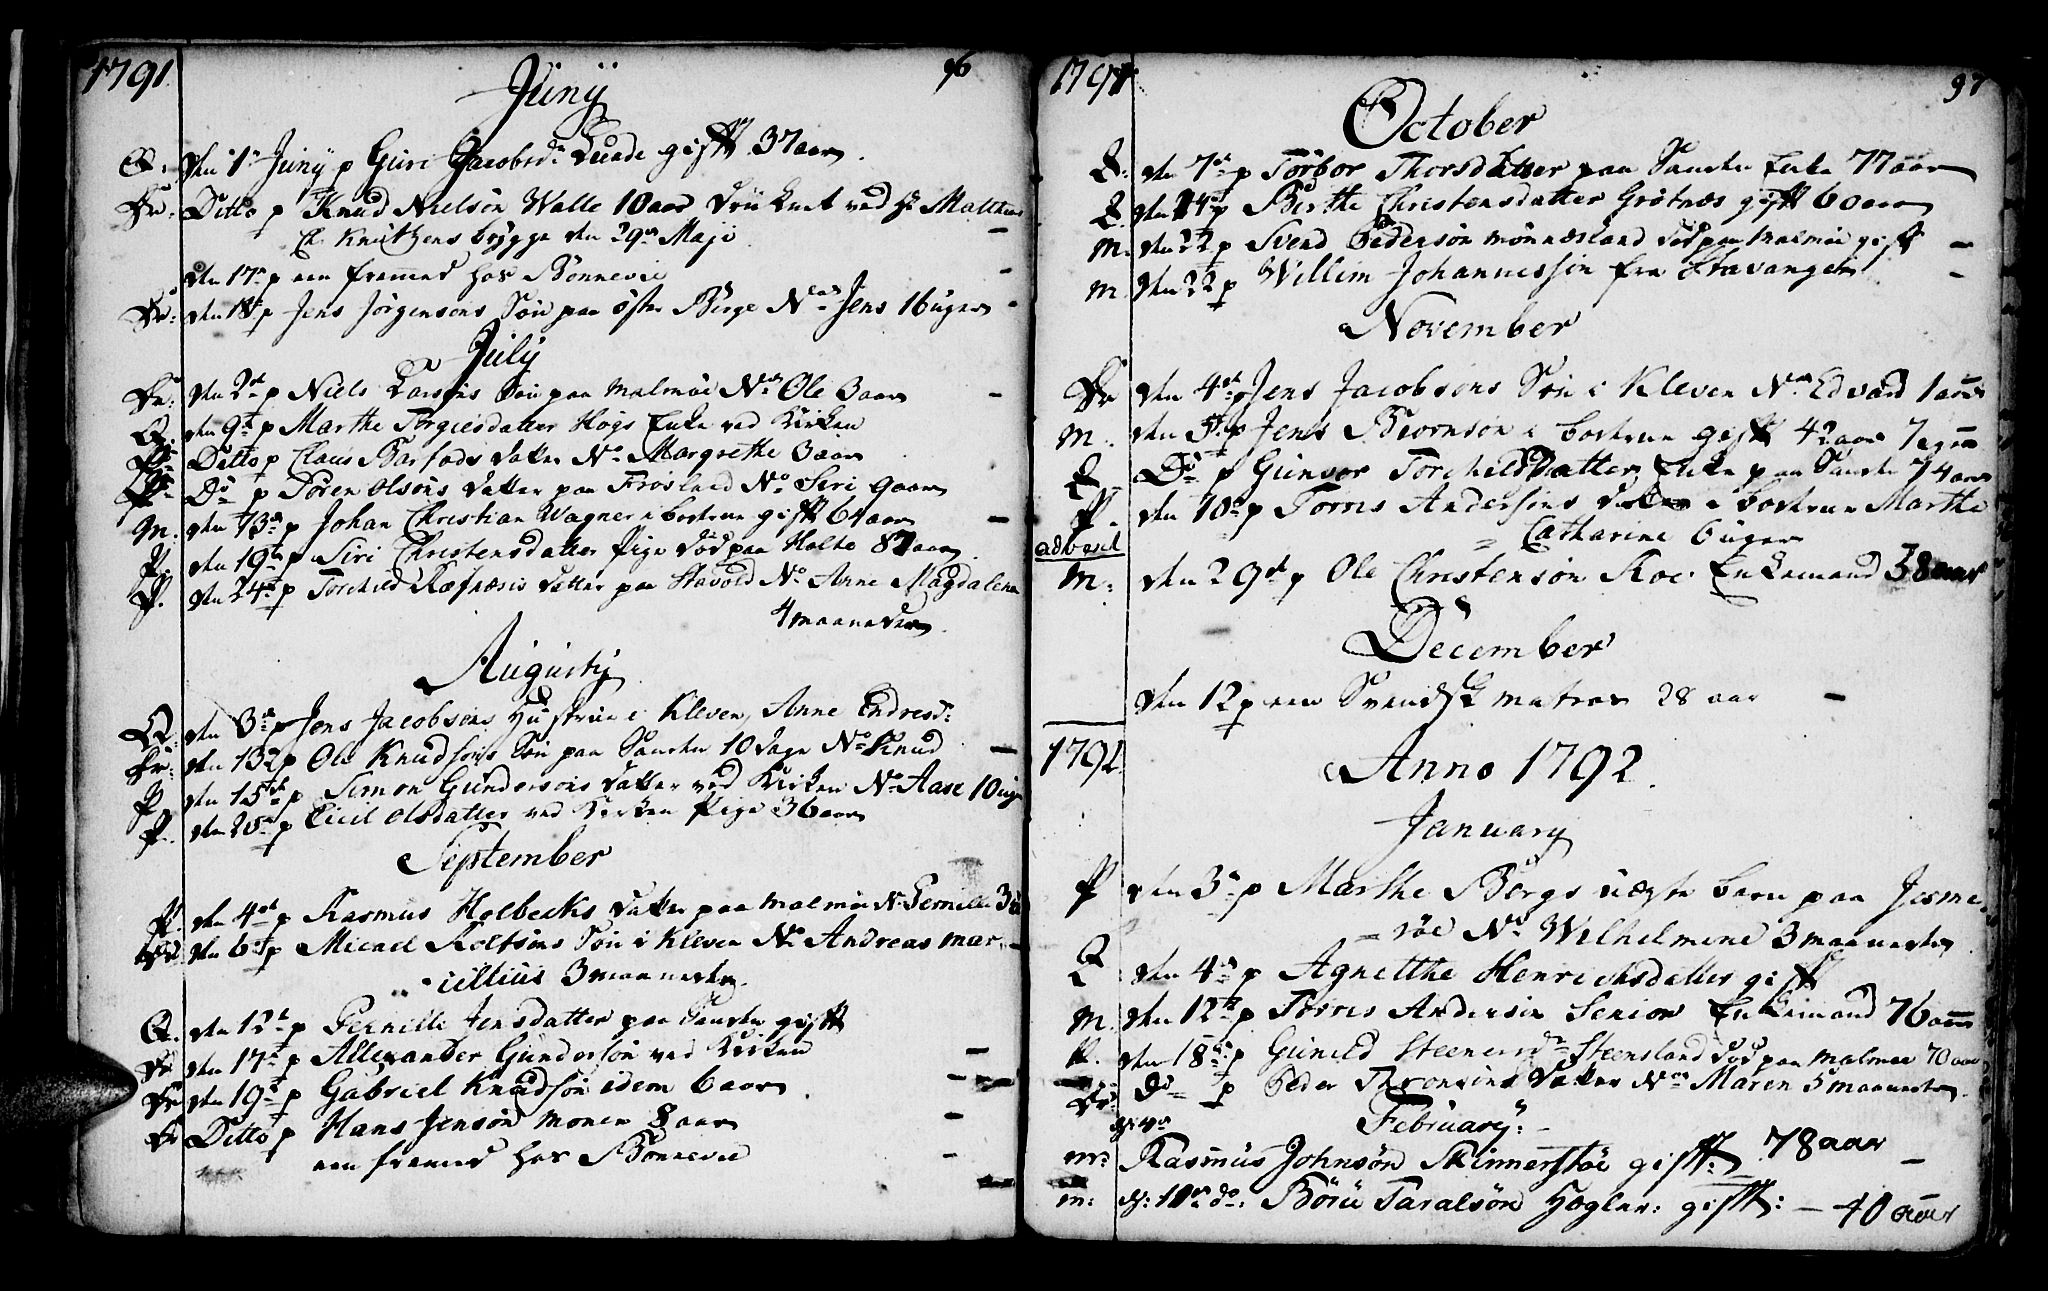 1791 96
Junij
Q: den 1ste Junij p Guri Jacobsdr Lunde gift 37 aar
Dr: Ditto p Knud Nielsøn Walle 10 aar druknet ved Hr Matthias
C. Knutzens brygge den 29de Maji
den 17de p een fremmed hos Bonnevie
Dr: den 18de p Jens Jørgensens Søn paa øster Berge Na Jens 16 uger
July
Dr: den 2den p Niels Larsens Søn paa Malmøe Na Ole 3 aar
Q. den 9de p Marthe Torgiesdatter Høgs Enke ved Kirken
P. Ditto p Claus Barfods datter Na Margrethe 3 aar
P. Do p Søren Olsøns datter paa Frøsland Na Siri 9 aar
M. den 13de p Johan Christian Wagner i gift 64 aar
P. den 19de p Siri Christensdatter Pige død paa Holte 87 aar
P. den 24de p Torchild datter paa Stavold Na Anne Magdalena
4 maaneder
Augustij
Q. den 3de p Jens Jacobsens Hustrue i Kleven, Anne Endresdr
Dr: den 13de p Ole Knudsøns Søn paa Sanden 10 dage Na Knud
P. den 15de p Simon Gundersøns datter ved Kirken Na Aase 10 uger
P. den 25de p Cicil Olsdatter ved Kirken Pige 36 aar
September
P. den 4de p Rasmus Holbecks datter paa Malmøe Na Pernille
Dr den 6te p Micael Søn i Kleven Na Andreas Mar-
cillius 3 maaneder
Q. den 12te p Pernille Jensdatter paa Sanden gift
Dr den 17de p Allexander Gundersøn ved Kirken
Dr den 19de p Gabriel Knudsøn idem 6 aar
Dr Ditto p Hans Jensøn Monen 8 aar
een fremmed hos Bonnevie
1791 97
October
Q: den 7de p Torbor Thorsdatter paa Sanden Enke 77 aar
Q den 14de p Birthe Christensdatter Grötnæs gift 60 aar
M. den 22de p Svend Pedersøn Mønnæsland død paa Malmøe gift
M. den 22de p Willim Johannessøn fra Stavanger
November
Dr den 4de p Jens Jacobsøns Søn i Kleven Na Edvard 1 aar
M. den 5te p Jens Biørnsøn i gift 42 aar 7 uger
Q Do p Gunvor Torchildsdatter Enke paa Sanden 74 aar
P. den 10de p Torris Andersøns datter i Marthe
Catharine 6 uger
M. den 29de p Ole Christensøn Roe Enkemand 38 aar
December
den 12 p een Svendsk matros 28 aar
1792. Anno 1792.
January
P den 3de p Marthe Bergs uægte barn paa Jerne-
røe Na Wilhelmine 3 maaneder
Q den 4de p Agnetthe Henrichsdatter gift
M. den 12te p Torris Andersøn Senior Enkemand 76 aar
den 18de p Gunild Steensland død paa Malmøe 70 aar
do p Peder datter Na Maren 5 maaneder
February:
M: Rasmus Johnsøn Skinnerstøe gift: 78 aar
M: d: 10de do: Børu Taralsøn Hogler: gift: - 40 aar